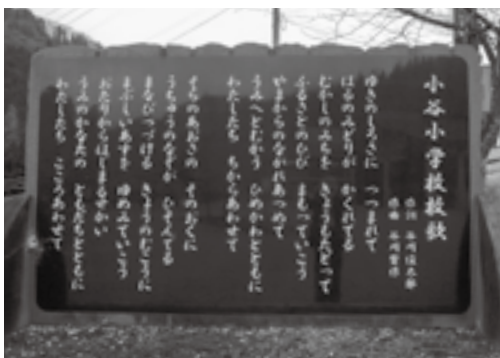 小谷小学校校歌
作詞 谷川俊太郎
作曲 谷川賢作
ゆきのしろさに つつまれて
はるのみどりが かくれてる
むかしのみちを きょうもたどって
ふるさとのひび まもっていこう
やまからのながれあつめて
うみへとむかう ひめかわとともに
わたしたち ちからあわせて
そらのあおさの そのおくに
うちゅうのなぞが ひそんでる
まなびつづける きょうのむこうに
まぶしいあすを ゆめみていこう
おたりからはじまるせかい
うみのかなたの ともだちとともに
わたしたち こころあわせて